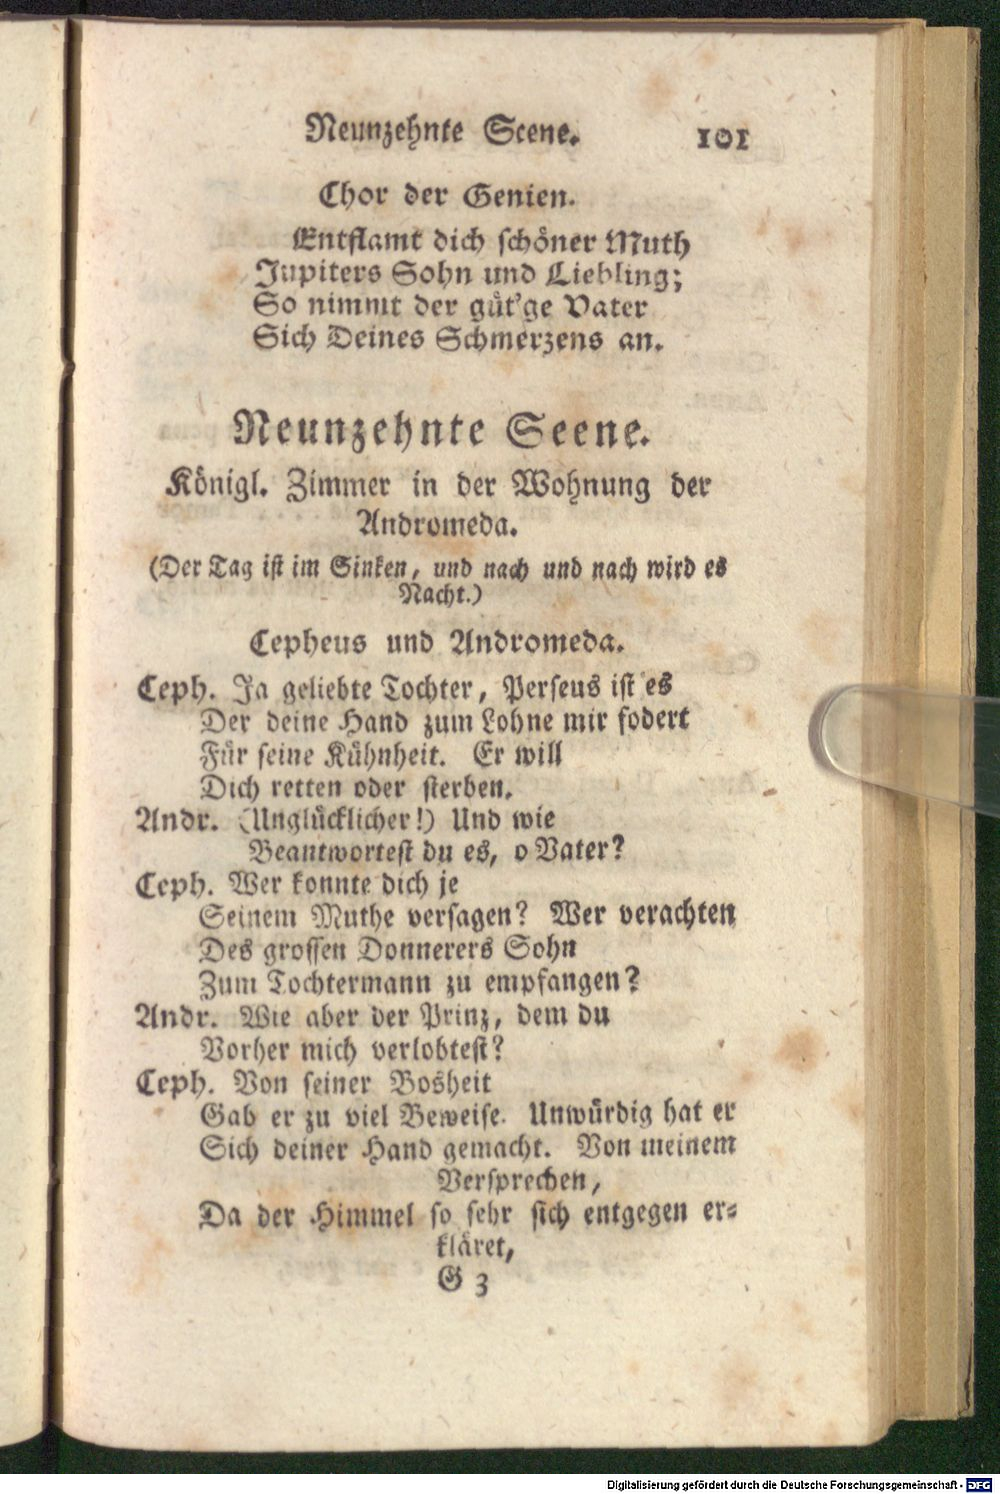 Neunzehnte Scene. 101
Chor der Genien.
Entflamt dich schöner Muth
Jupiters Sohn und Liebling;
So nimmt der güt'ge Vater
Sich Deines Schmerzens an.
Neunzehnte Scene.
Königl. Zimmer in der Wohnung der
Andromeda.
(Der Tag ist im Sinken, und nach und nach wird es
Nacht.)
Cepheus und Andromeda.
Ceph. Ja geliebte Tochter, Perseus ist es
Der deine Hand zum Lohne mir fodert
Für seine Kühnheit. Er will
Dich retten oder sterben.
Andr. (Unglücklicher!) Und wie
Beantwortest du es, o Vater?
Ceph. Wer konnte dich je
Seinem Muthe versagen? Wer verachten
Des grossen Donnerers Sohn
Zum Tochtermann zu empfangen?
Andr. Wie aber der Prinz, dem du
Vorher mich verlobtest?
Ceph. Von seiner Bosheit
Gab er zu viel Beweise. Unwürdig hat er
Sich deiner Hand gemacht. Von meinem
Versprechen,
Da der Himmel so sehr sich entgegen er-
kläret,
G 3
Digitalisierung gefördert durch die Deutsche Forschungsgemeinschaft - DFG